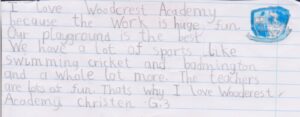 I Love Woodcrest Academy
because the Work is huge fun.
Our playground is the best.
We have a lot of sports like
swimming cricket and badmington
and a whole lot more. The teachers
are lots of fun. Thats why I love Woodcrest
Academy Christen G.3